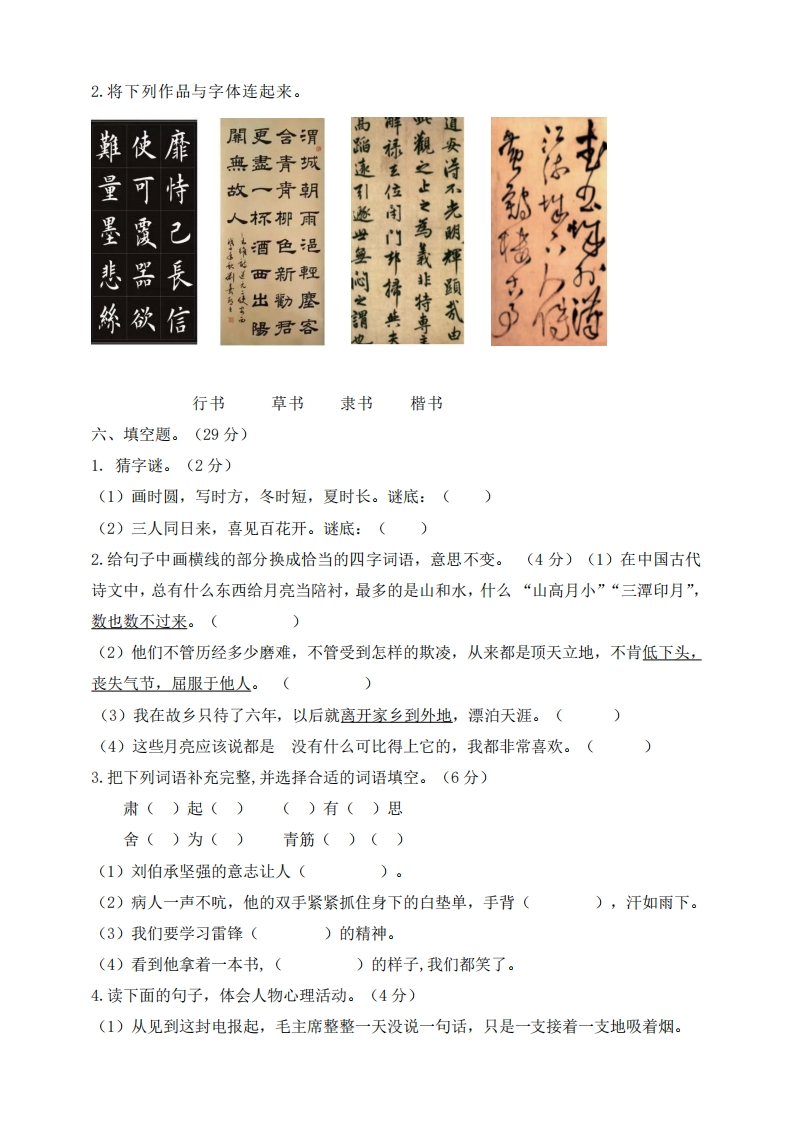 2.将下列作品与字体连起来。
靡恃己長信
使可覆器欲
難量墨悲絲
渭城朝雨浥輕塵客
舍青青柳色新勸君
更盡一杯酒西出陽
關無故人
道安得不光明輝顯哉由
此觀之止之為義非特專
解祿去位閉門却掃
高蹈遠引遯世無悶之謂也
行书 草书 隶书 楷书
六、填空题。（29 分）
1. 猜字谜。（2 分）
（1）画时圆，写时方，冬时短，夏时长。谜底：（ ）
（2）三人同日来，喜见百花开。谜底：（ ）
2.给句子中画横线的部分换成恰当的四字词语，意思不变。 （4 分）（1）在中国古代
诗文中，总有什么东西给月亮当陪衬，最多的是山和水，什么 “山高月小”“三潭印月”，
数也数不过来。（ ）
（2）他们不管历经多少磨难，不管受到怎样的欺凌，从来都是顶天立地，不肯低下头，
丧失气节，屈服于他人。 （ ）
（3）我在故乡只待了六年，以后就离开家乡到外地，漂泊天涯。（ ）
（4）这些月亮应该说都是 没有什么可比得上它的，我都非常喜欢。（ ）
3.把下列词语补充完整,并选择合适的词语填空。（6 分）
肃（ ）起（ ） （ ）有（ ）思
舍（ ）为（ ） 青筋（ ）（ ）
（1）刘伯承坚强的意志让人（ ）。
（2）病人一声不吭，他的双手紧紧抓住身下的白垫单，手背（ ），汗如雨下。
（3）我们要学习雷锋（ ）的精神。
（4）看到他拿着一本书,（ ）的样子,我们都笑了。
4.读下面的句子，体会人物心理活动。（4 分）
（1）从见到这封电报起，毛主席整整一天没说一句话，只是一支接着一支地吸着烟。